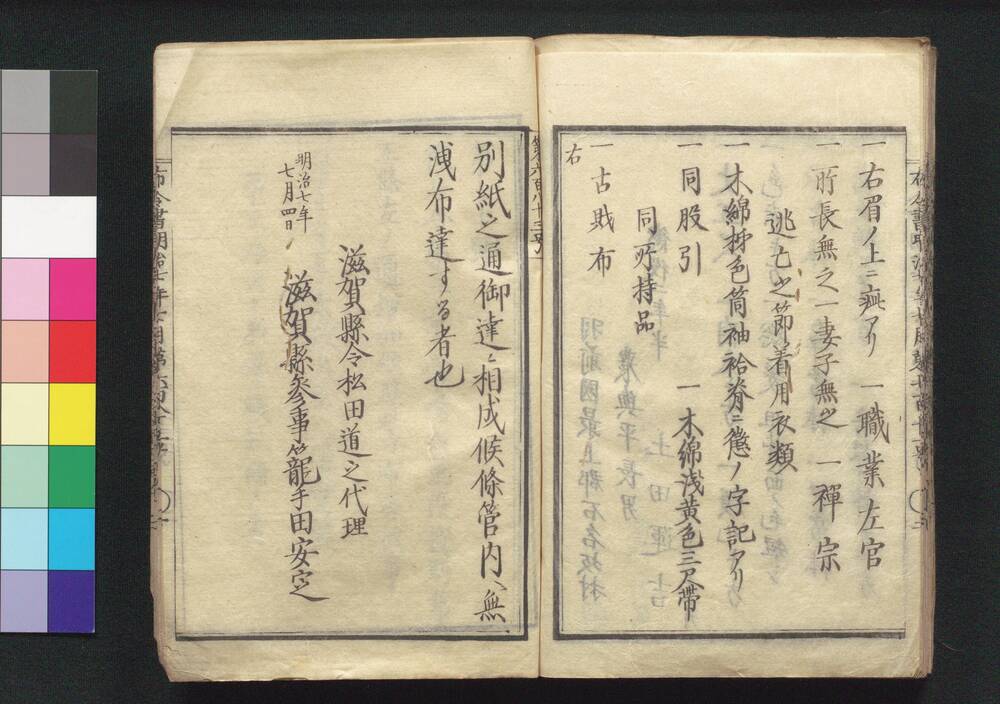 一右眉ノ上ニ疵アリ　一職業左官
一所長無之一妻子無之　一禅宗
逃亡之節着用衣類
一木綿柹色筒袖袷脊ニ懲ノ字記アリ
一同股引　一木綿浅黄色三尺帯
同所持品
一古財布
右
第六百八十三号
別紙之通御達ニ相成候條管内ヘ無
洩布達する者也
滋賀縣令松田道之代理
明治七年
七月四日
滋賀縣参事籠手田安定